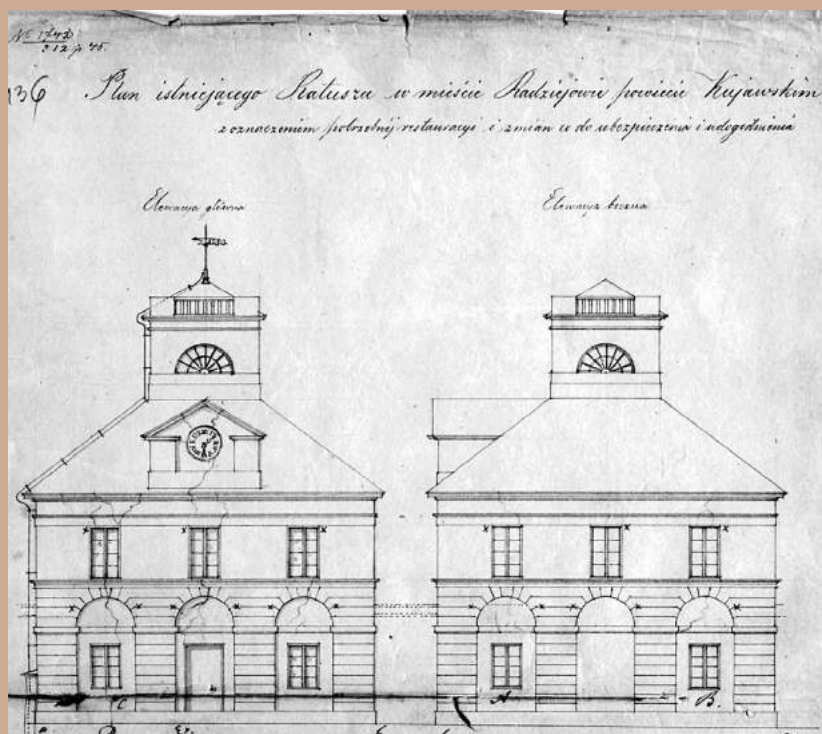 No 1743
312 p 45.
136 Plan istniejącego Ratusza w mieście Radziejowie powiecie Kujawskim
z oznaczeniem potrzebnéj restauracyi i zmian co do ubezpieczenia i udogodnienia
Elewacya główna Elewacya boczna
C A B.